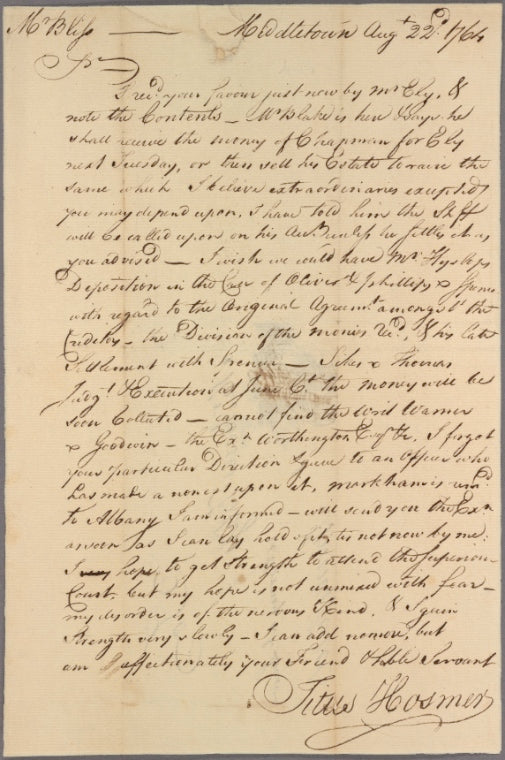 Mr Bliss — Middletown Augt 22d. 1764
Sr
I recd. your favour just now by mr Ely, &
note the Contents – Mr Blake is here & Says he
shall receive the money of Chapman for Ely
next Tuesday, or then sell his Estate to raise the
same which I believe extraordinaries excepted
you may depend upon, I have told him the Shff
will be called upon on his unless he settles it as
you advised — I wish we could have Mr. Hyslops
Deposition in the Case of Oliver & Phillips v
with regard to the Original Agreemt amongst the
Creditors – the Division of the monies Recd, & his late
Settlement with – Sikes v Thomas
Judgt. & Execution at June Ct. the money will be
soon Collected – cannot find the Writ Warner
v Goodwin – the Exn. Worthington Esqr I forgot
your particular Direction & gave to an officer who
has made a nonest upon it, Markham is remd.
to Albany I am informed – will send you the Exn
as soon as I can lay hold of it, tis not now by me:
I hope to get Strength to attend the Superiour
Court, but my hope is not unmixed with fear –
my disorder is of the nervous Kind, & I gain
Strength very slowly – I can add no more, but
am affectionately your Friend & hble Servant
Titus Hosmer